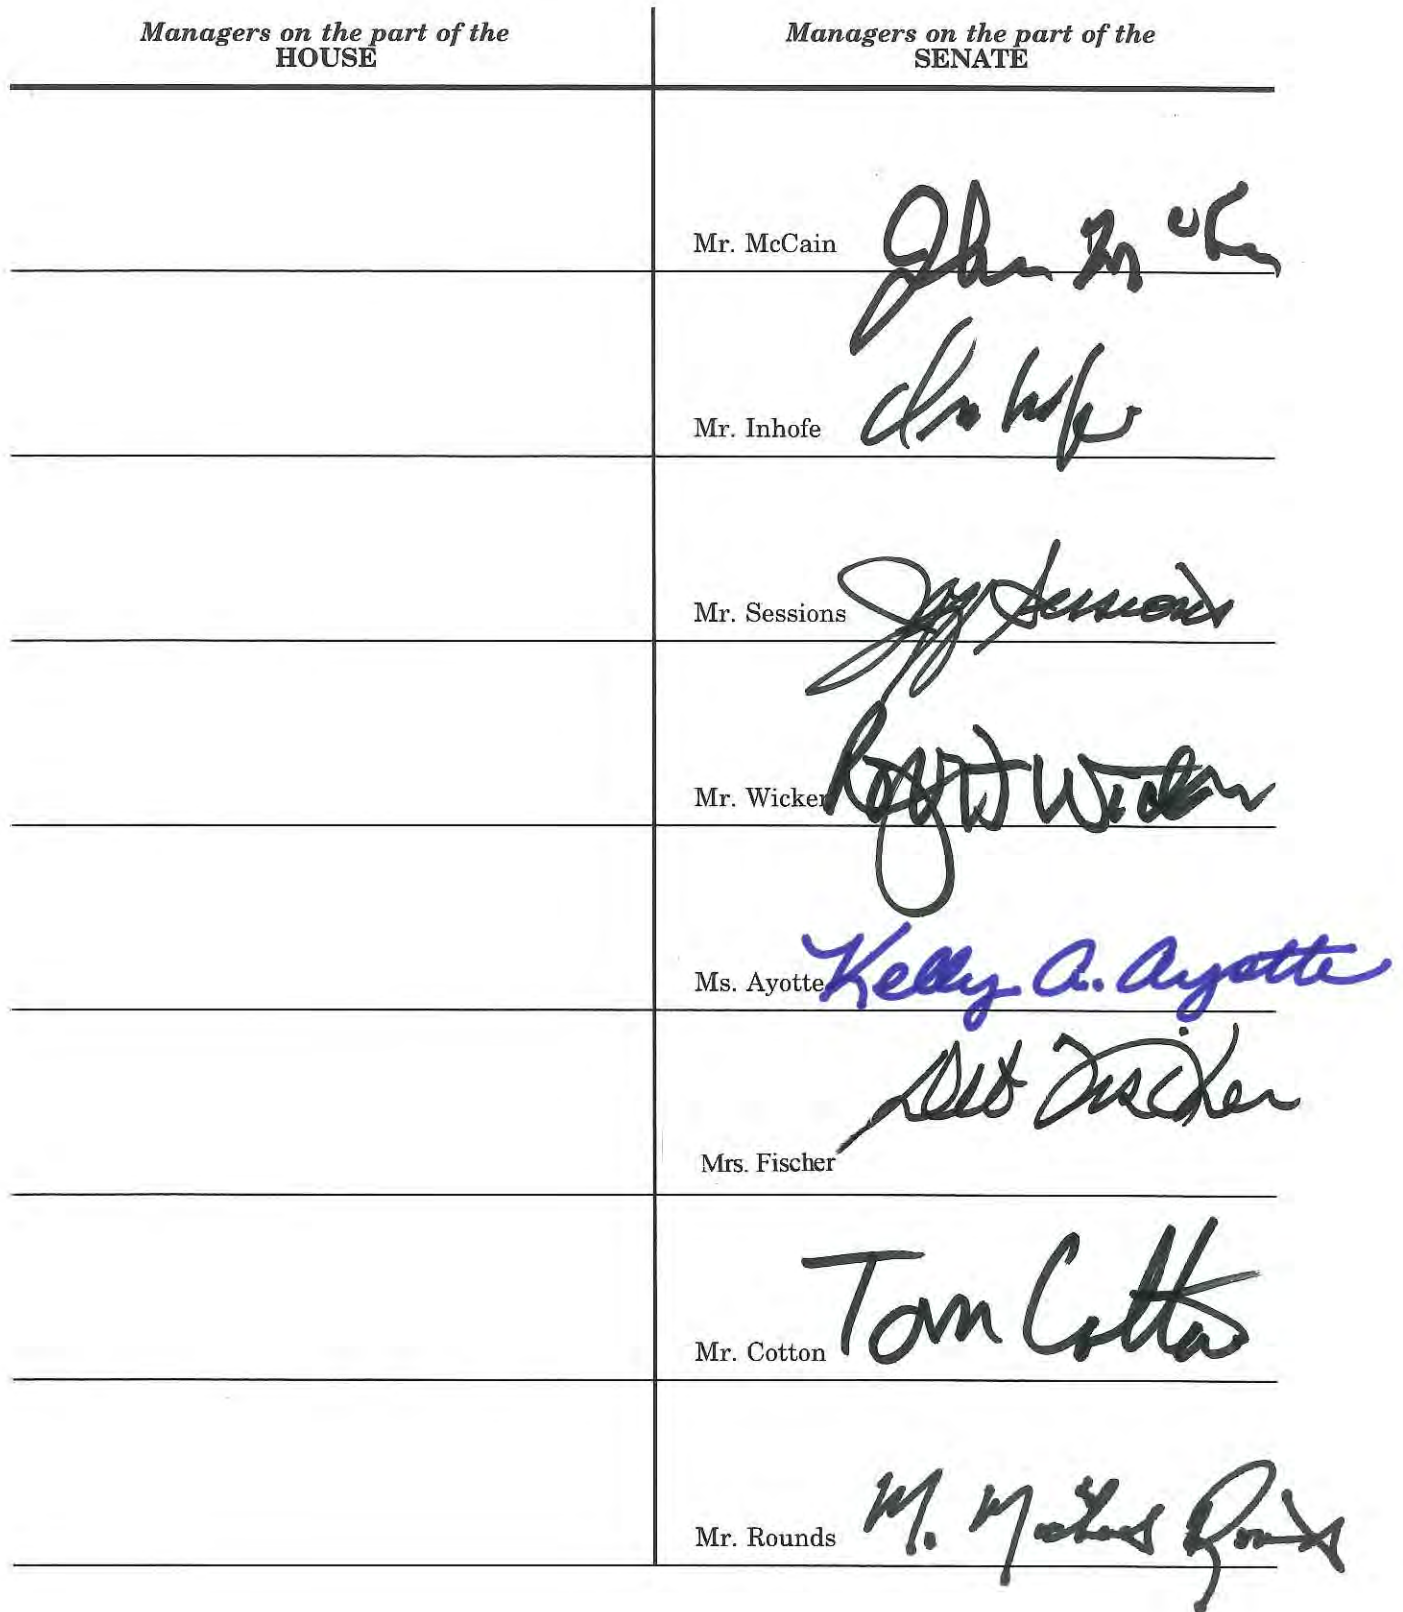 Managers on the part of the
HOUSE
Managers on the part of the
SENATE
Mr. McCain John McCain
Mr. Inhofe Inhofe
Mr. Sessions Jeff Sessions
Mr. Wicker Roger F Wicker
Ms. Ayotte Kelly A. Ayotte
Mrs. Fischer Deb Fischer
Mr. Cotton Tom Cotton
Mr. Rounds M. Michael Rounds